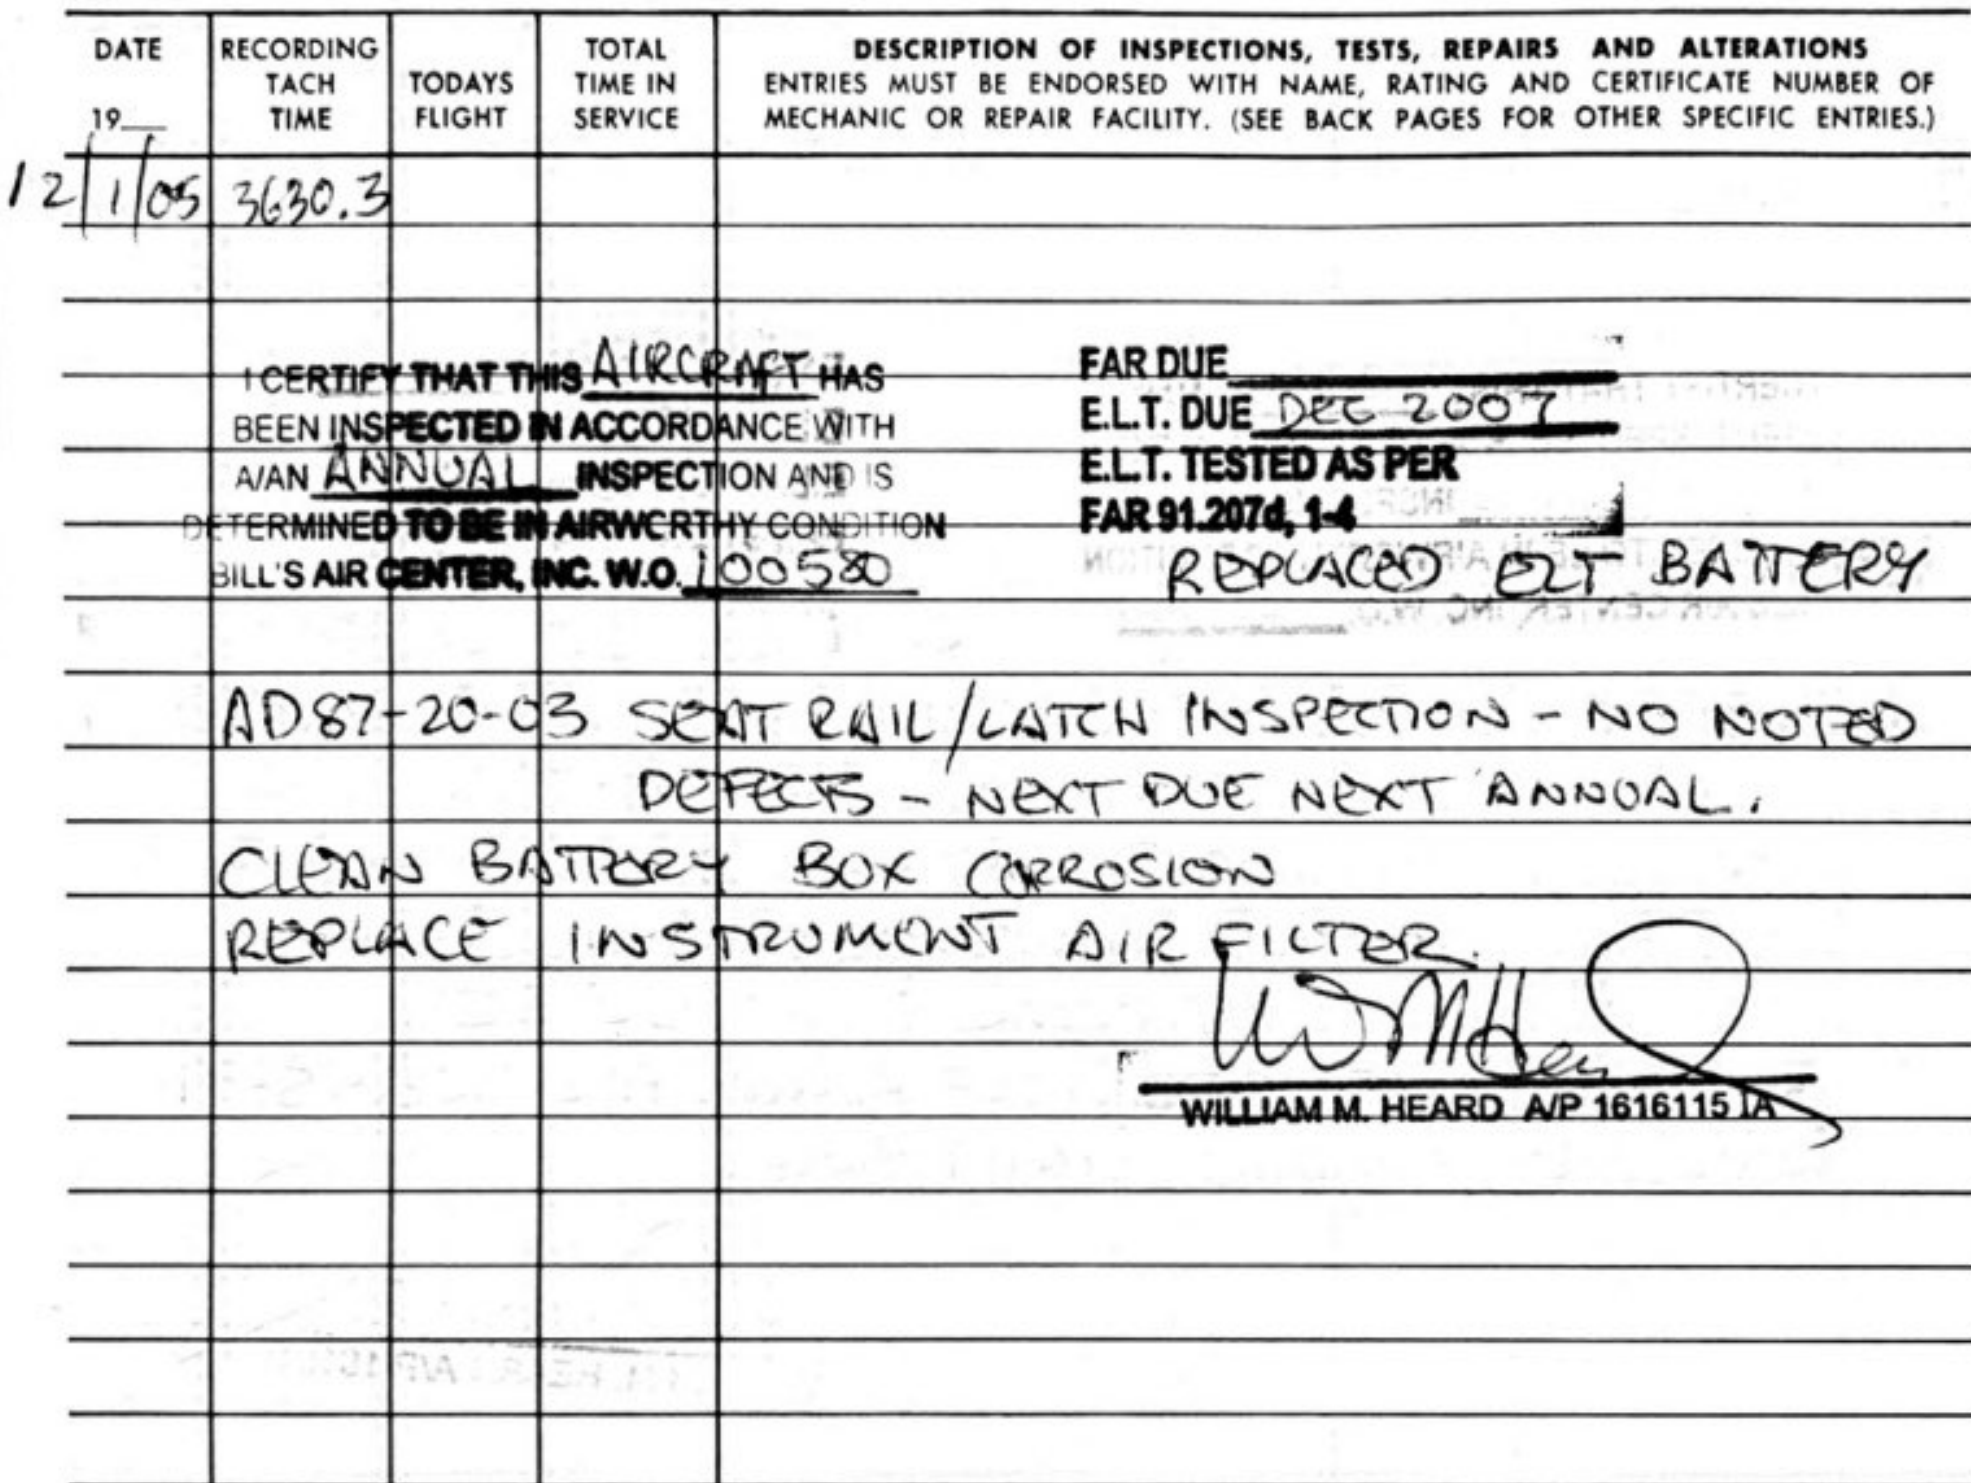 DATE
19__
RECORDING
TACH
TIME
TODAYS
FLIGHT
TOTAL
TIME IN
SERVICE
DESCRIPTION OF INSPECTIONS, TESTS, REPAIRS AND ALTERATIONS
ENTRIES MUST BE ENDORSED WITH NAME, RATING AND CERTIFICATE NUMBER OF
MECHANIC OR REPAIR FACILITY. (SEE BACK PAGES FOR OTHER SPECIFIC ENTRIES.)
12/1/05 3630.3
I CERTIFY THAT THIS AIRCRAFT HAS
BEEN INSPECTED IN ACCORDANCE WITH
A/AN ANNUAL INSPECTION AND IS
DETERMINED TO BE IN AIRWORTHY CONDITION
BILL'S AIR CENTER, INC. W.O. 100580
FAR DUE
E.L.T. DUE DEC 2007
E.L.T. TESTED AS PER
FAR 91.207d, 1-4
REPLACED ELT BATTERY
AD 87-20-03 SEAT RAIL/LATCH INSPECTION - NO NOTED
DEFECTS - NEXT DUE NEXT ANNUAL.
CLEAN BATTERY BOX CORROSION
REPLACE INSTRUMENT AIR FILTER.
Wm M Heard
WILLIAM M. HEARD A/P 1616115 IA